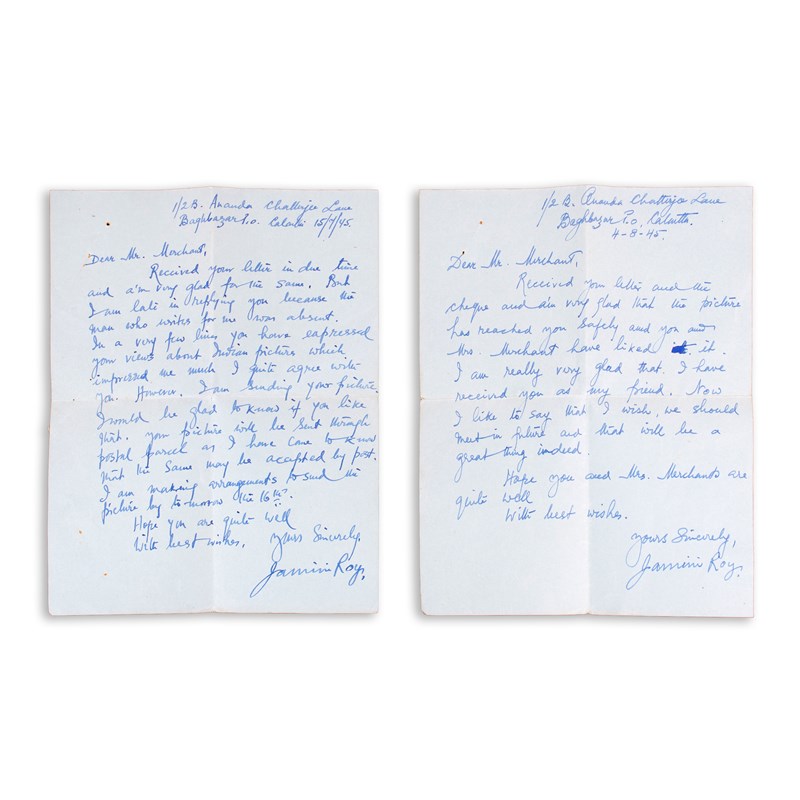 1/2 B. Ananda Chatterjee Lane
Baghbazar P.o. Calcutta 15/7/45.
Dear Mr. Merchant,
Received your letter in due time
and a'm very glad for the same. But
I am late in replying you because the
man who writes for me was absent.
In a very few lines you have expressed
your views about Indian picture which
impressed me much I quite agree with
you. However. I am sending your picture.
I would be glad to know if you like
that. your picture will be sent through
postal parcel as I have came to know
that the same may be accepted by post.
I am making arrangements to send the
picture by to-morrow the 16th.
Hope you are quite well
With best wishes.
Yours Sincerely,
Jamini Roy.
1/2 B. Ananda Chatterjee Lane
Baghbazar P.o, Calcutta.
4-8-45.
Dear Mr. Merchant,
Received your letter and the
cheque and a'm very glad that the picture
has reached you safely and you and
Mrs. Merchant have liked it.
I am really very glad that. I have
received you as my friend. Now
I like to say that I wish, we should
meet in future and that will be a
great thing indeed.
Hope you and Mrs. Merchants are
quite well
With best wishes.
Yours Sincerely,
Jamini Roy.